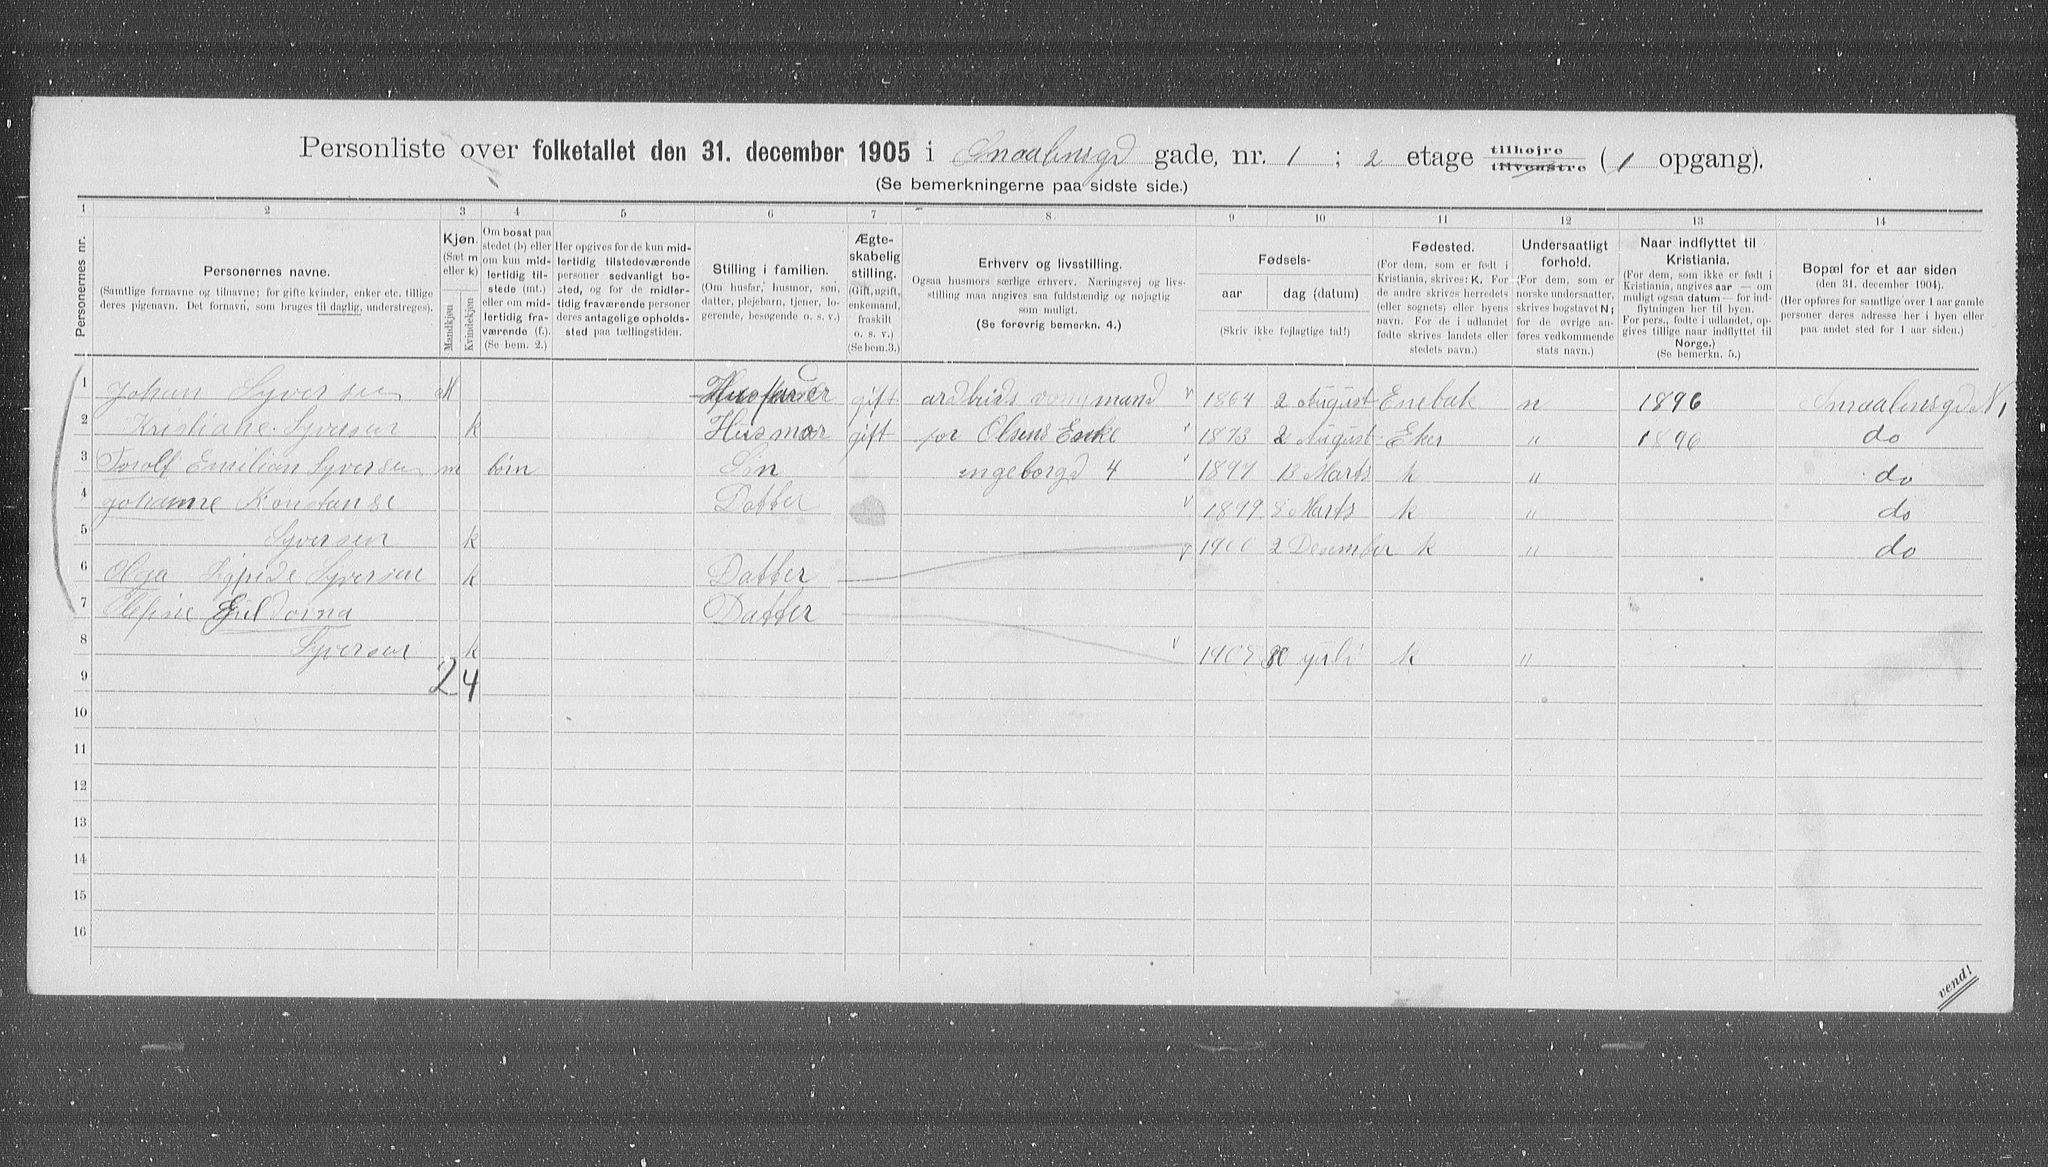 Personliste over folketallet den 31. december 1905 i Smaalensgd gade, nr. 1 ; 2 etage tilhøjre tilvenstre (1 opgang).
(Se bemerkningerne paa sidste side.)
1 2 3 4 5 6 7 8 9 10 11 12 13 14
Personernes nr.
Personernes navne.
(Samtlige fornavne og tilnavne; for gifte kvinder, enker etc. tillige
deres pigenavn. Det fornavn, som bruges til daglig, understreges).
Kjøn.
(Sæt m
eller k)
Mandkjøn
Kvindekjøn
Om bosat paa
stedet (b) eller
om kun mid-
lertidig til-
stede (mt.)
eller om mid-
lertidig fra-
værende (f.).
(Se bem. 2.)
Her opgives for de kun mid-
lertidig tilstedeværende
personer sedvanlig bo-
sted, og for de midler-
tidig fraværende personer
deres antagelige opholds-
sted paa tællingstiden.
Stilling i familien.
(Om husfar, husmor, søn,
datter, plejebarn, tjener, lo-
gerende, besøgende o. s. v.)
Ægte-
skabelig
stilling.
(Gift, ugift,
enkemand,
fraskilt
o. s. v.)
(Se bem. 3.)
Erhverv og livsstilling.
Ogsaa husmors særlige erhverv. Næringsvej og livs-
stilling maa angives saa fuldstændig og nøjagtig
som muligt.
(Se forøvrig bemerkn. 4.)
Fødsels-
aar dag (datum)
(Skriv ikke fejlagtige tal!)
Fødested.
(For dem, som er født i
Kristiania, skrives: K. For
de andre skrives herredets
(eller sognets) eller byens
navn. For de i udlandet
fødte skrives landets eller
stedets navn.)
Undersaatligt
forhold.
(For dem, som er
norske undersaatter,
skrives bogstavet N;
for de øvrige an-
føres vedkommende
stats navn.)
Naar indflyttet til
Kristiania.
(For dem, som ikke er født i
Kristiania, angives aar — om
muligt ogsaa datum — for ind-
flytningen her til byen.
For pers., født i udlandet, op-
gives tillige naar indflyttet til
Norge.)
(Se bemerkn. 5.)
Bopæl for et aar siden
(den 31. december 1904).
(Her opføres for samtlige over 1 aar gamle
personer deres adresse her i byen eller
paa andet sted for 1 aar siden.)
1 Johan Syversen M gift 1864 2 August Enebak n 1896 Smaalensgd N 1
2 Kristiane Syversen k Husmor gift for Olsens Enke 1873 2 August Eker " 1896 do
3 Torolf Emilian Syversen m børn Søn ingeborgd 4 1897 13 Marts k " do
4 Johanne Konstanse Datter 1899 8 Marts k " do
5 Syversen k 1900 2 Desember k " do
6 Olga Sigfride Syversen k Datter
7 Olefine Datter
8 Syversen k juli k "
9 2 4
10
11
12
13
14
15
16
vend!